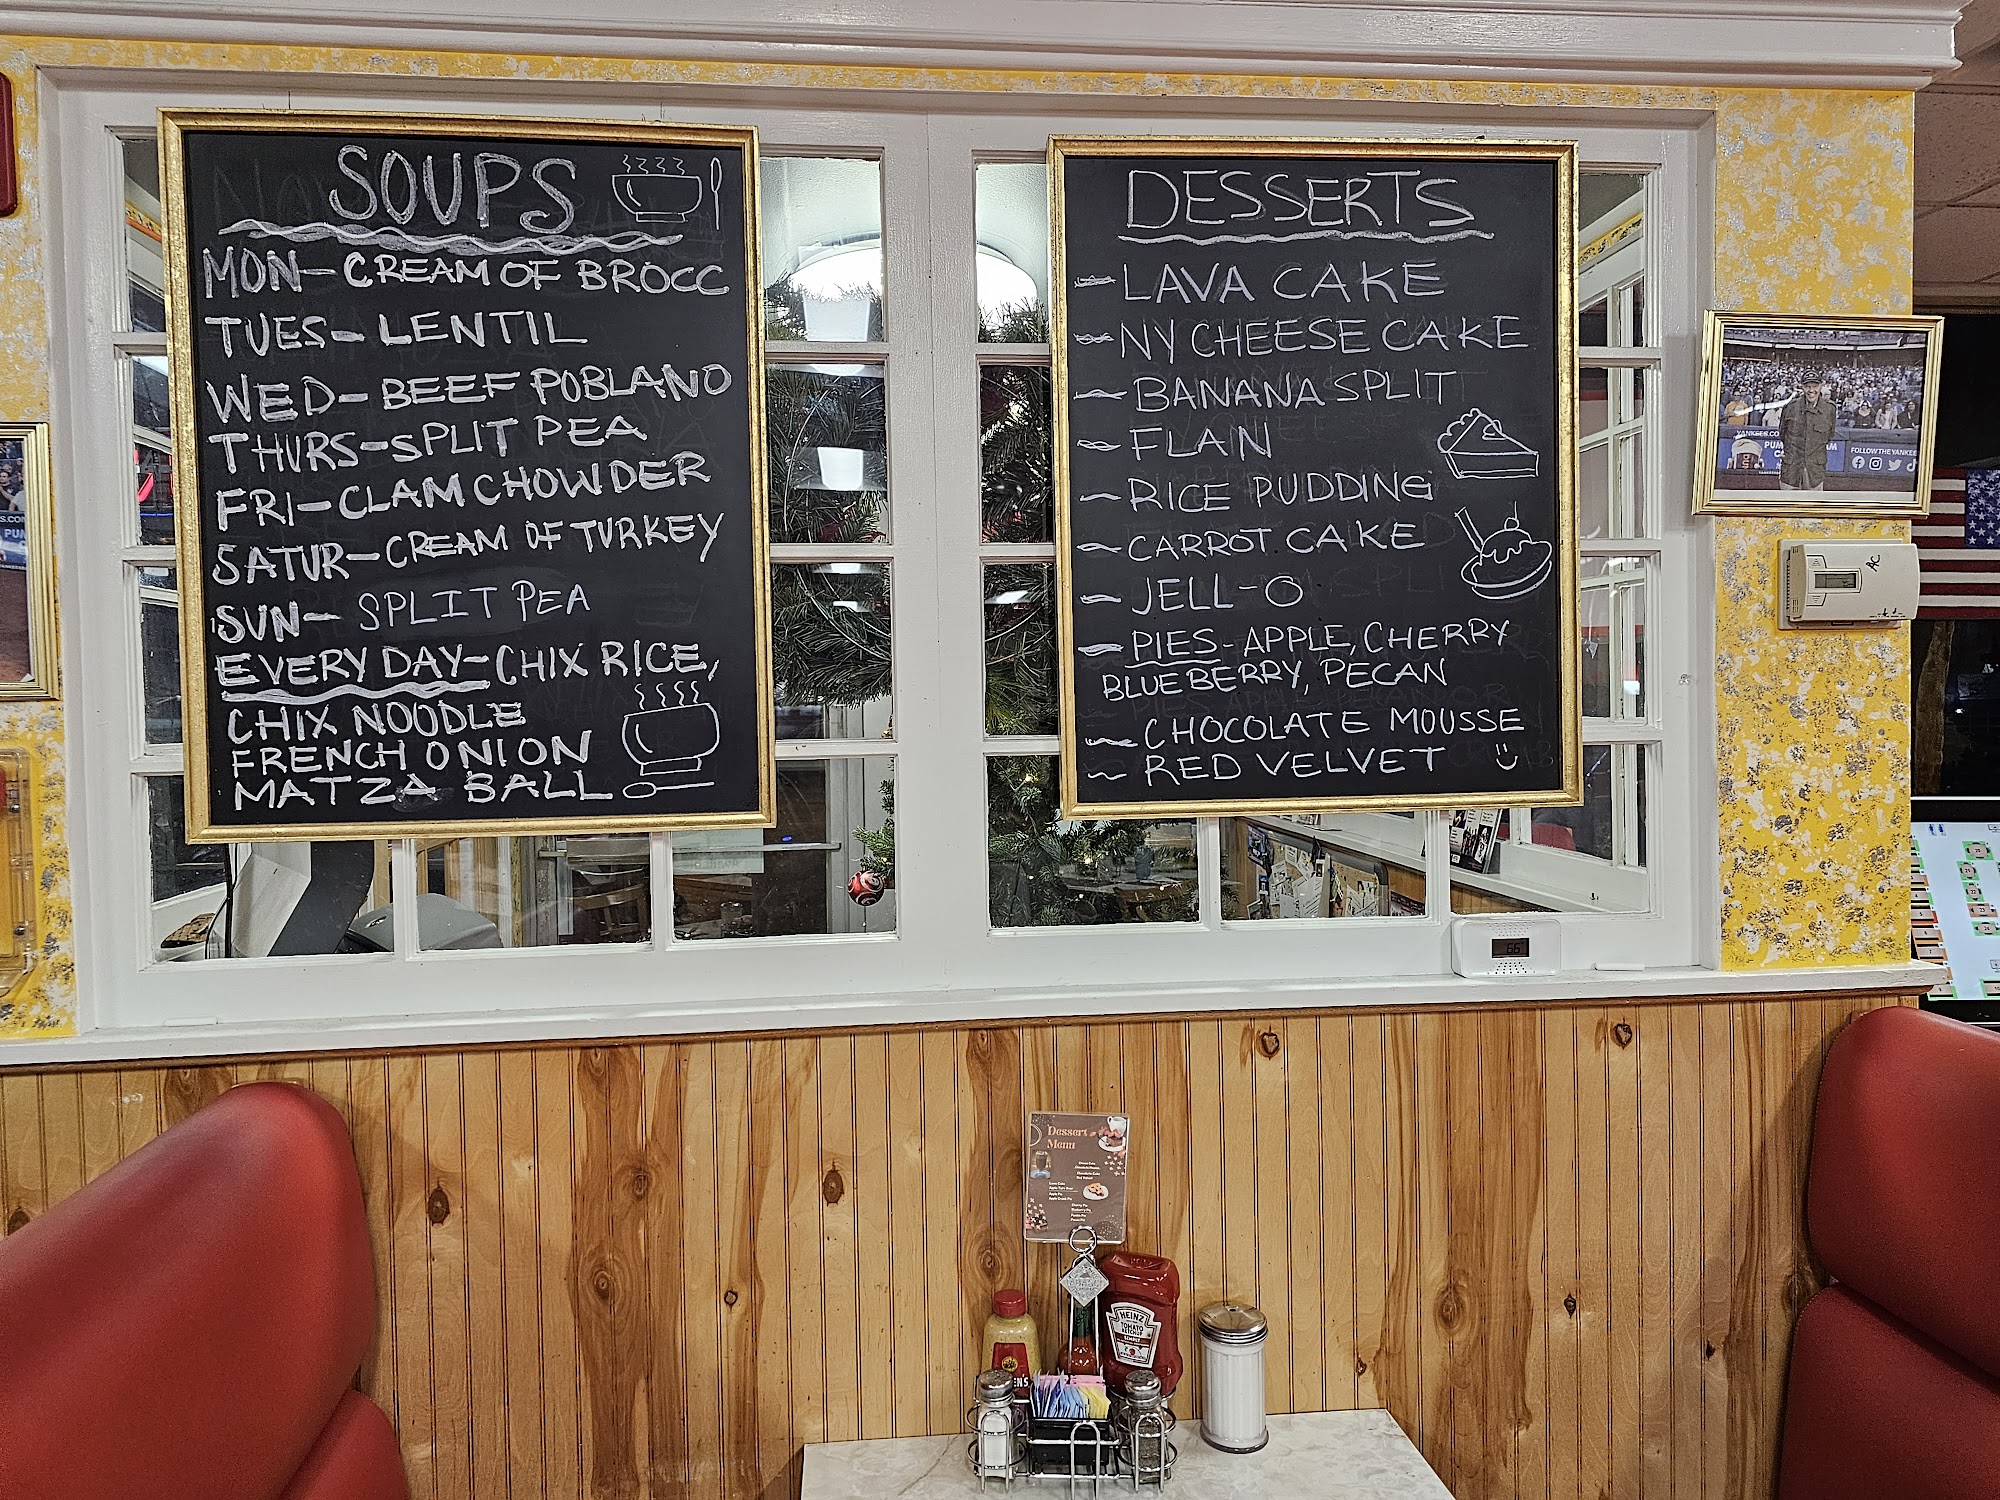 SOUPS
MON-CREAM OF BROCC
TUES-LENTIL
WED-BEEF POBLANO
THURS-SPLIT PEA
FRI-CLAM CHOWDER
SATUR-CREAM OF TURKEY
SUN-SPLIT PEA
EVERY DAY-CHIX RICE,
CHIX NOODLE
FRENCH ONION
MATZA BALL
DESSERTS
- LAVA CAKE
- NY CHEESE CAKE
- BANANA SPLIT
- FLAN
- RICE PUDDING
- CARROT CAKE
- JELL-O
- PIES-APPLE, CHERRY
BLUEBERRY, PECAN
- CHOCOLATE MOUSSE
- RED VELVET
FOLLOW THE YANKEES
AC
66
Dessert
Menu
HEINZ
TOMATO
KETCHUP
SIMPLY